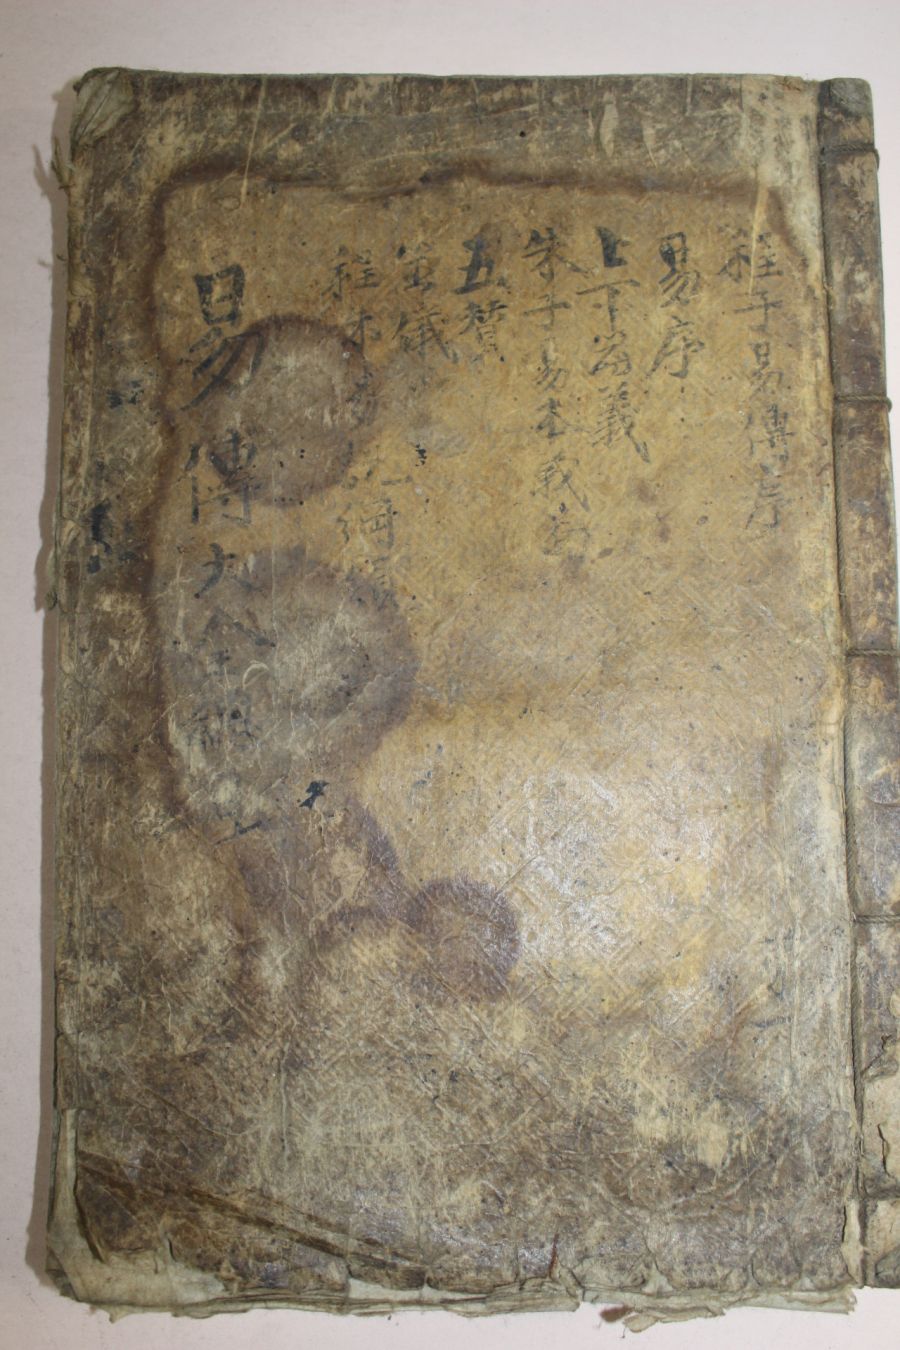 程子易傳序
易序
上下篇義
朱子易本義圖
五贊
筮儀
程朱 綱領
易傳大全